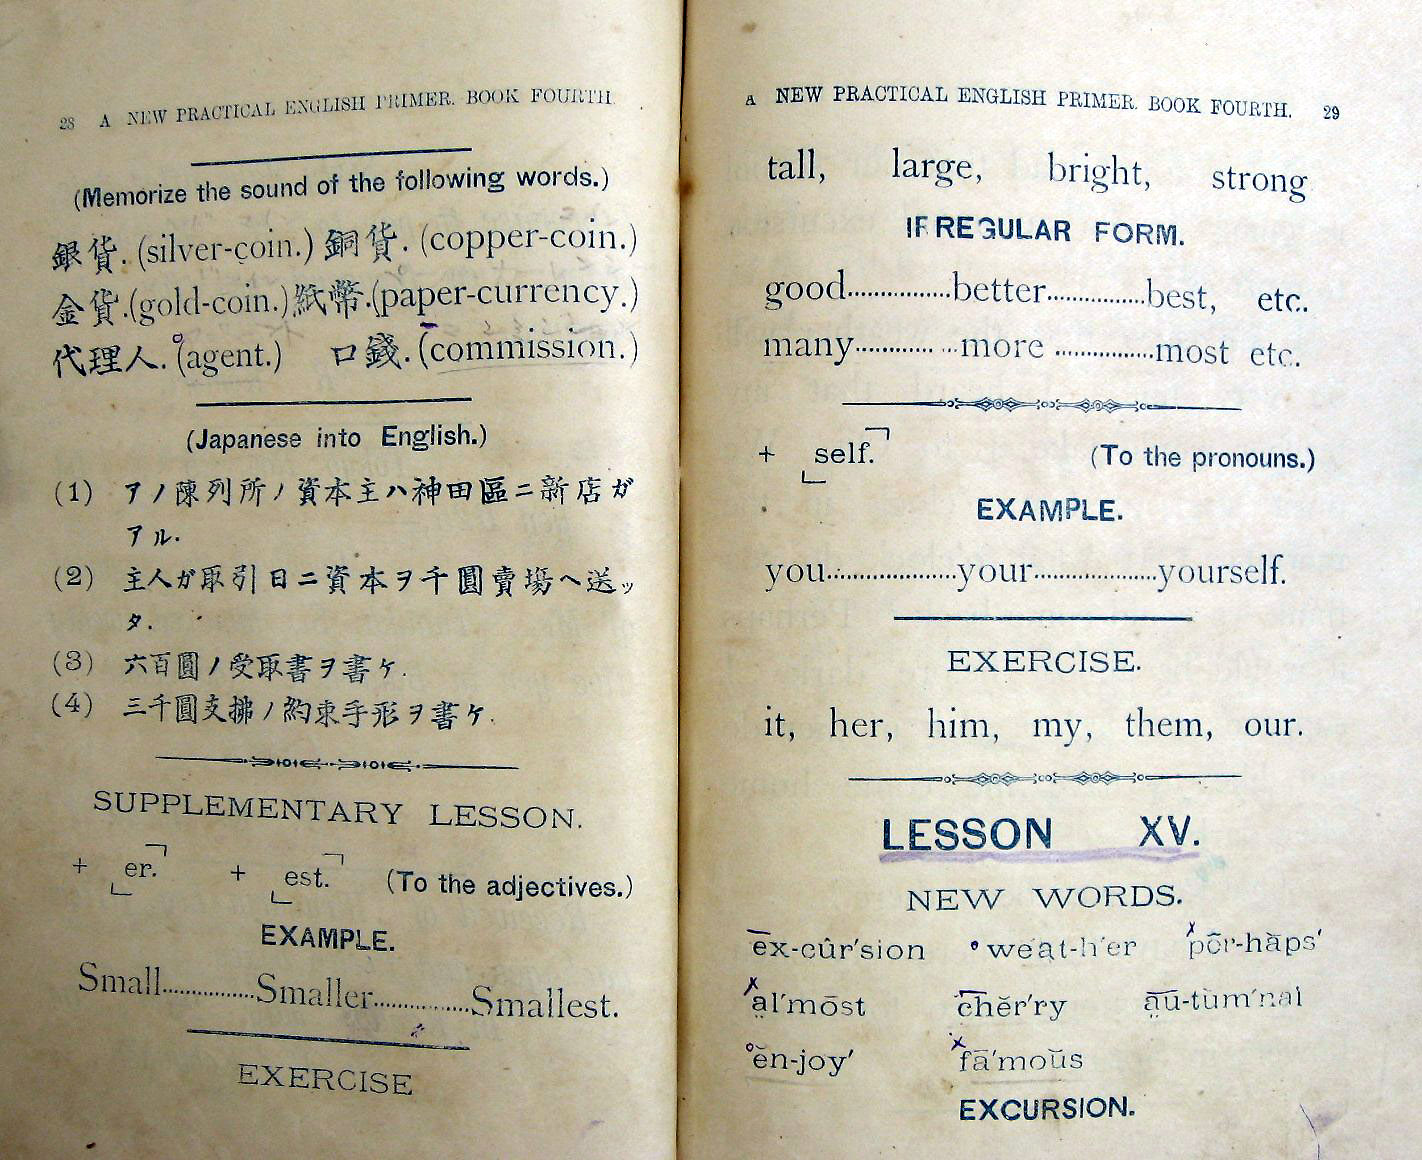 28 A NEW PRACTICAL ENGLISH PRIMER. BOOK FOURTH.
(Memorize the sound of the following words.)
銀貨. (silver-coin.) 銅貨. (copper-coin.)
金貨. (gold-coin.) 紙幣. (paper-currency.)
代理人. (agent.) 口錢. (commission.)
(Japanese into English.)
(1) アノ陳列所ノ資本主ハ神田區ニ新店ガ
アル.
(2) 主人ガ取引日ニ資本ヲ千圓賣塲ヘ送ッ
タ.
(3) 六百圓ノ受取書ヲ書ケ.
(4) 三千圓支拂ノ約束手形ヲ書ケ.
SUPPLEMENTARY LESSON.
+ er. + est. (To the adjectives.)
EXAMPLE.
Small...............Smaller...............Smallest.
EXERCISE
A NEW PRACTICAL ENGLISH PRIMER. BOOK FOURTH. 29
tall, large, bright, strong
IRREGULAR FORM.
good...............better...............best, etc.
many...............more...............most etc.
+ self. (To the pronouns.)
EXAMPLE.
you...................your...................yourself.
EXERCISE.
it, her, him, my, them, our.
LESSON XV.
NEW WORDS.
ĕx-cûr′sion wĕat-h′er pẽr-hăps′
a̤l′mōst chĕr′ry a̤u-tŭm′nal
ĕn-joy′ fā′moŭs
EXCURSION.